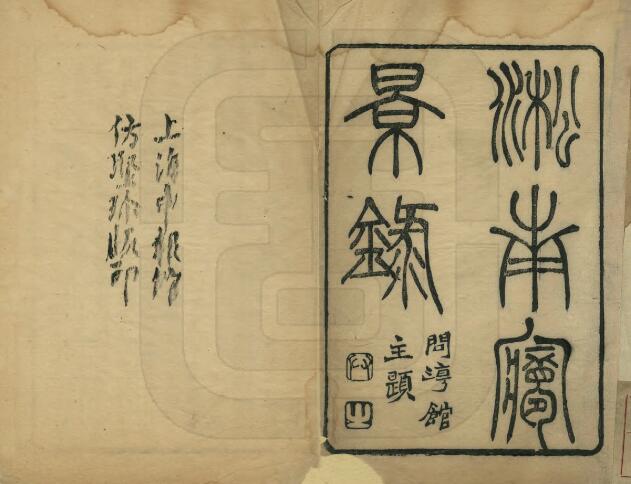 淞南寢
景錄
問淳館
主題
上海申報館
仿聚珍版印